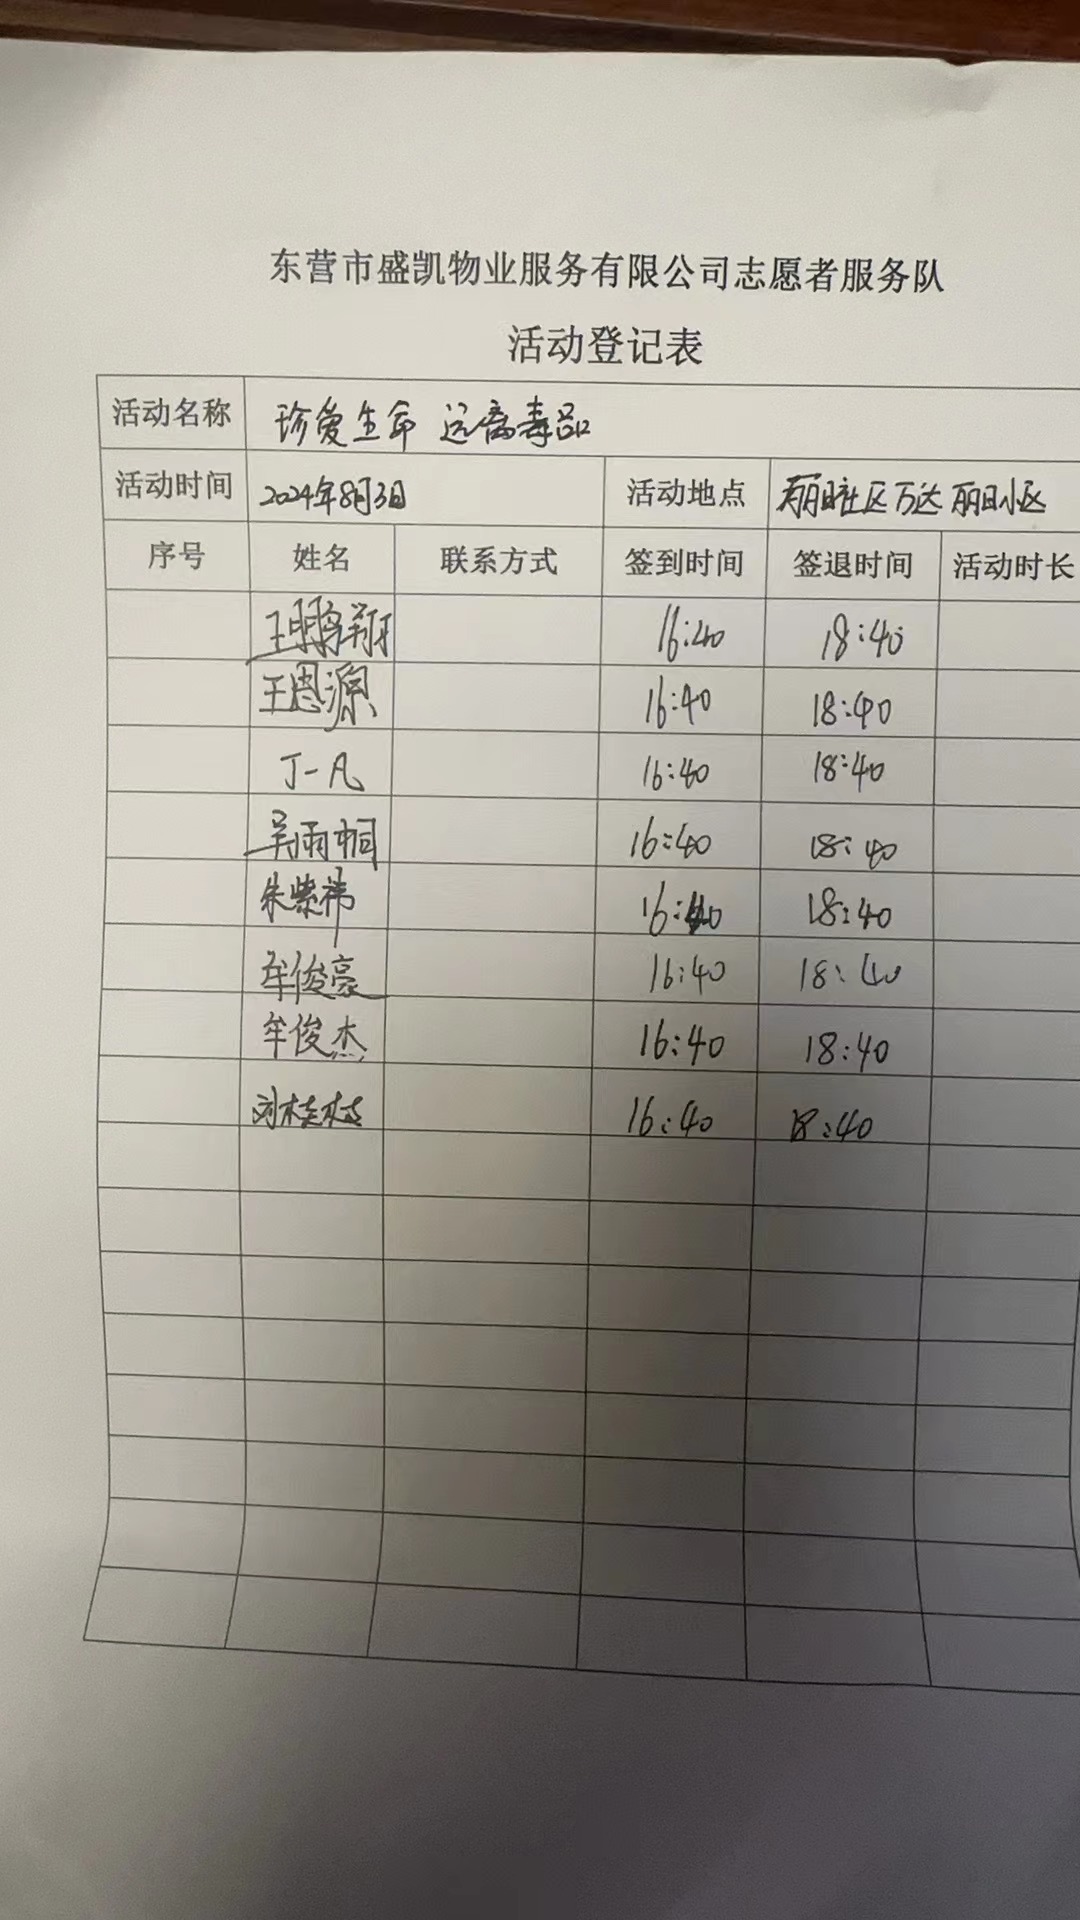 东营市盛凯物业服务有限公司志愿者服务队
活动登记表
活动名称 珍爱生命 远离毒品
活动时间 2024年8月3日 活动地点 丽日社区万达丽日小区
序号 姓名 联系方式 签到时间 签退时间 活动时长
王鹏翔 16:40 18:40
王恩源 16:40 18:40
丁一凡 16:40 18:40
吴雨桐 16:40 18:40
朱紫祎 16:40 18:40
牟俊豪 16:40 18:40
牟俊杰 16:40 18:40
刘桂枝 16:40 18:40